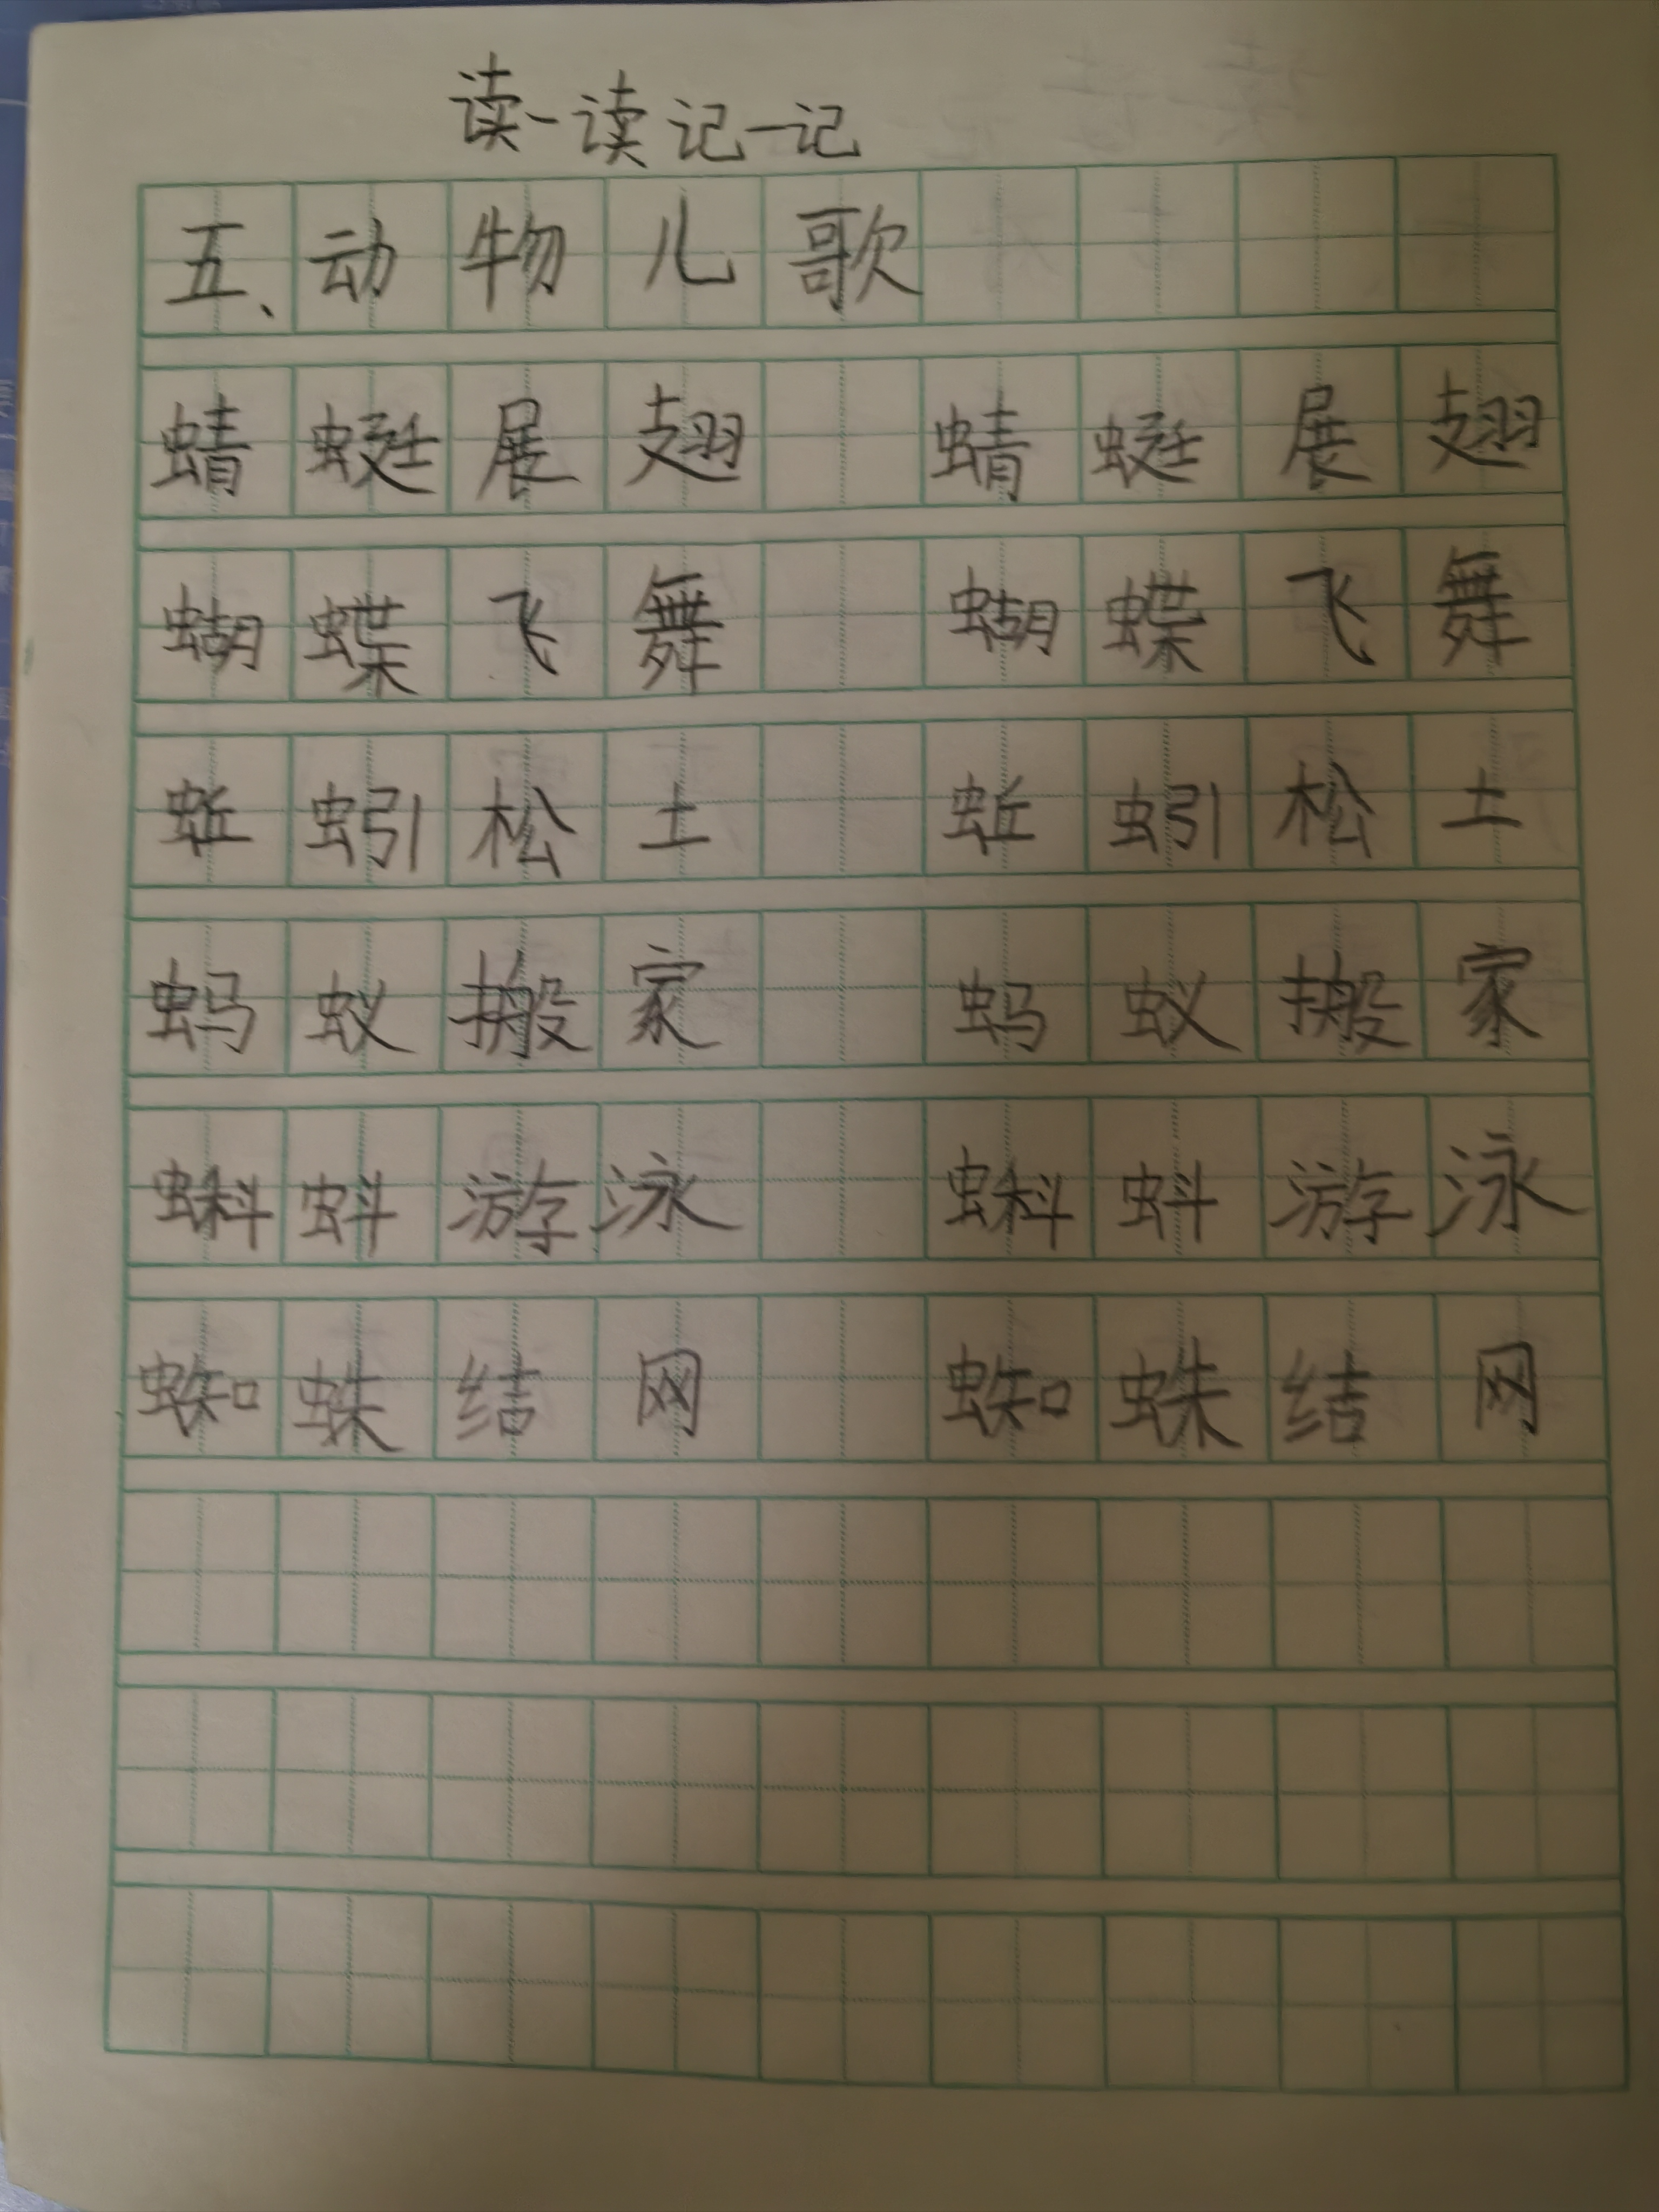 读一读记一记
五、动物儿歌
蜻蜓展翅 蜻蜓展翅
蝴蝶飞舞 蝴蝶飞舞
蚯蚓松土 蚯蚓松土
蚂蚁搬家 蚂蚁搬家
蝌蚪游泳 蝌蚪游泳
蜘蛛结网 蜘蛛结网